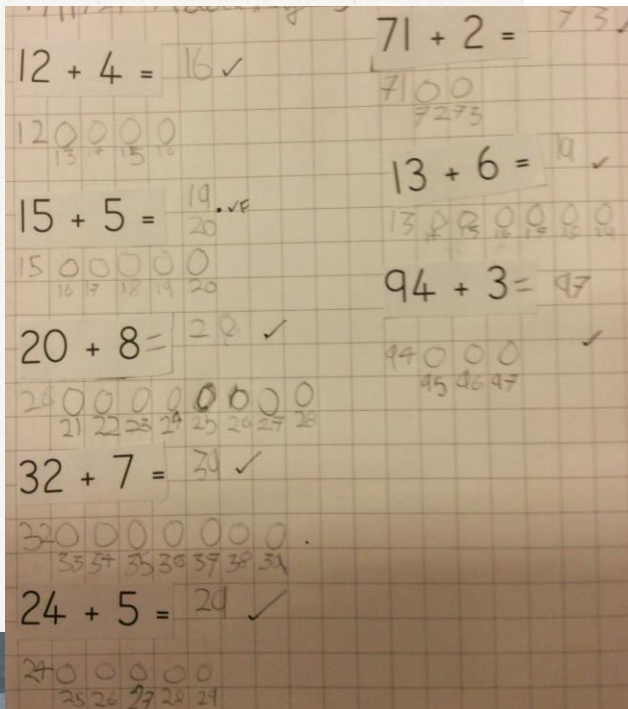 12 + 4 = 16 ✓
12 0 0 0 0
13 15 16
15 + 5 = 19 . ✓F
20
15 0 0 0 0 0
16 17 18 19 20
20 + 8 = 28 ✓
20 0 0 0 0 0 0 0 0
21 22 23 24 25 26 27 28
32 + 7 = 39 ✓
32 0 0 0 0 0 0 0 .
33 34 35 36 37 38 39
24 + 5 = 29 ✓
24 0 0 0 0 0
25 26 27 28 29
71 + 2 = 73 ✓
71 0 0
72 73
13 + 6 = 19 ✓
13 0 0 0 0 0 0
94 + 3 = 97
94 0 0 0 ✓
95 96 97